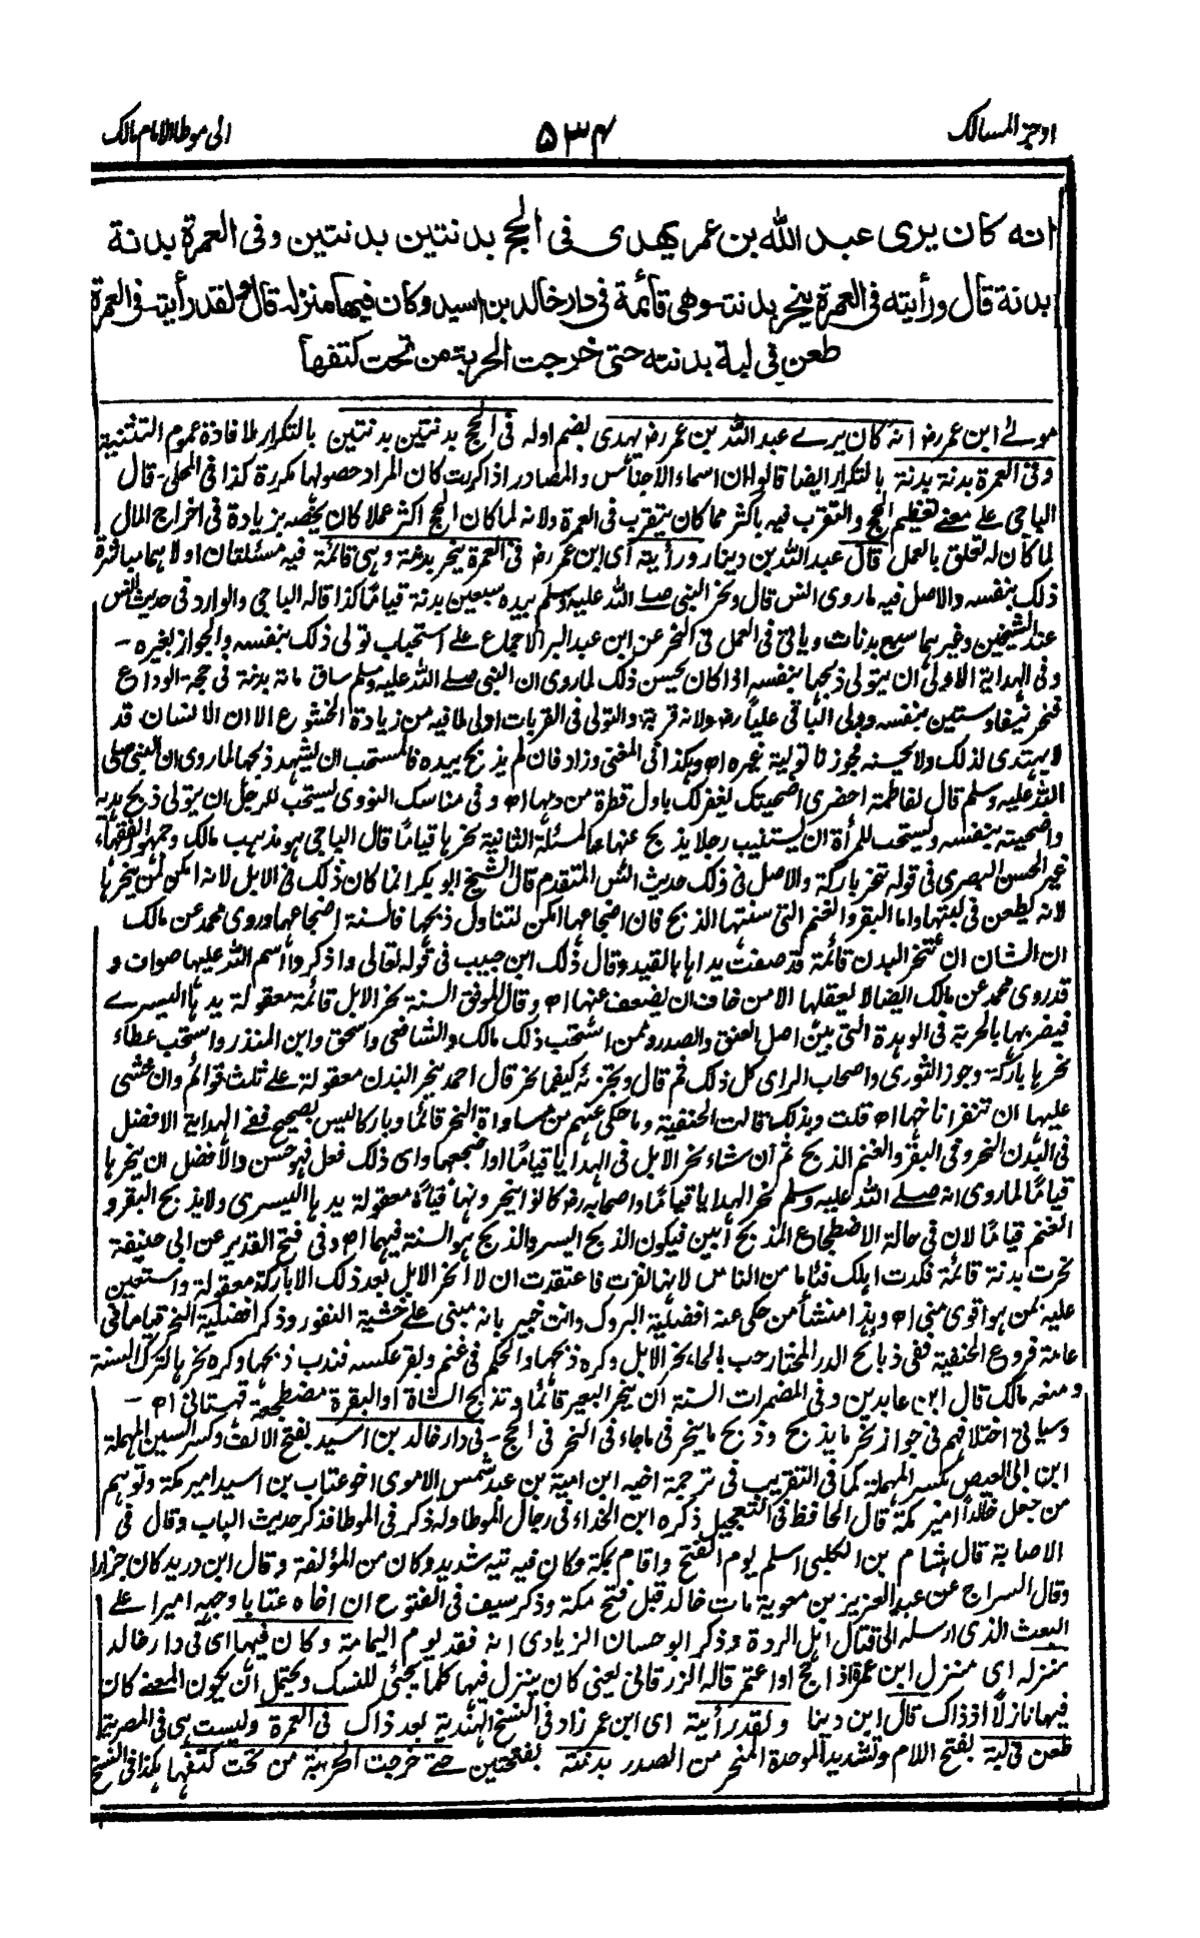 اوجز المسالك
۵۳۴
الى موطا الامام مالك
انه كان يرى عبد الله بن عمر يهدى فى الحج بدنتين بدنتين وفى العمرة بدنة
بدنة قال ورأيته فى العمرة ينحر بدنته وهى قائمة فى دار خالد بن اسيد وكان فيها منزله قال ولقد رأيته فى العمرة
طعن فى لبة بدنته حتى خرجت الحربة من تحت كتفها
مولى ابن عمر رض انه كان يرى عبد الله بن عمر رض يهدى بضم اوله فى الحج بدنتين بدنتين بالتكرار لافادة عموم التثنية
وفى العمرة بدنة بدنة بالتكرار ايضا قالوا ان اسماء الاجناس والمصادر اذا كررت كان المراد حصولها مكررة كذا فى المحلى - قال
الباجى على معنى تعظيم الحج والتقرب فيه باكثر مما كان يتقرب فى العمرة ولانه لما كان الحج اكثر عملا كان يخصه بزيادة فى اخراج المال
لما كان له تعلق بالعمل قال عبد الله بن دينار ورأيته اى ابن عمر رض فى العمرة ينحر بدنته وهى قائمة فيه مسئلتان اولاهما مباشرة
ذلك بنفسه والاصل فيه ما روى انس قال ونحر النبى صلى الله عليه وسلم بيده سبعين بدنة قياما كذا قاله الباجى والوارد فى حديث انس
عند الشيخين وغيرهما سبع بدنات وياتى فى العمل فى النحر عن ابن عبد البر الاجماع على استحباب تولى ذلك بنفسه والجواز لغيره -
وفى الهداية الاولى ان يتولى ذبحها بنفسه اذا كان يحسن ذلك لما روى ان النبى صلى الله عليه وسلم ساق مائة بدنة فى حجة الوداع
فنحر نيفا وستين بنفسه وولى الباقى عليا رض ولانه قربة والتولى فى القربات اولى لما فيه من زيادة الخشوع الا ان الانسان قد
لا يهتدى لذلك ولا يحسنه فجوزنا توليته غيره اه وهكذا فى المغنى وزاد فان لم يذبح بيده فالمستحب ان يشهد ذبحها لما روى ان النبى صلى
الله عليه وسلم قال لفاطمة احضرى اضحيتك يغفر لك باول قطرة من دمها اه وفى مناسك النووى يستحب للرجل ان يتولى ذبح هديه
واضحيته بنفسه ويستحب للمرأة ان تستنيب رجلا يذبح عنها اه المسئلة الثانية نحرها قياما قال الباجى هو مذهب مالك وجمهور الفقهاء
غير الحسن البصرى فى قوله تنحر باركة والاصل فى ذلك حديث انس المتقدم قال الشيخ ابو بكر انما كان ذلك فى الابل لانه امكن لمن ينحرها
لانه يطعن فى لبتها واما البقر والغنم التى سنتها الذبح فان اضجاعها امكن لتناول ذبحها فالسنة اضجاعها وروى محمد عن مالك
ان الشان ان تنحر البدن قائمة قد صفت يداها بالقيد وقال ذلك ابن حبيب فى قوله تعالى واذكروا اسم الله عليها صواف و
قد روى محمد عن مالك ايضا لا يعقلها الا من خاف ان يضعف عنها اه وقال الموفق السنة نحر الابل قائمة معقولة يدها اليسرى
فيضربها بالحربة فى الوهدة التى بين اصل العنق والصدر وممن استحب ذلك مالك والشافعى واسحق وابن المنذر واستحب عطاء
نحرها باركة وجوز الثورى واصحاب الراى كل ذلك ثم قال ويجزئه كيفما نحر قال احمد ينحر البدن معقولة على ثلث قوائم وان خشى
عليها ان تنفر اناخها اه قلت وبذلك قالت الحنفية وما حكى عنهم من مساواة النحر قائما وباركا ليس بصحيح ففى الهداية الافضل
فى البدن النحر وفى البقر والغنم الذبح ثم ان شاء نحر الابل فى الهدايا قياما او اضجعها واى ذلك فعل فهو حسن والافضل ان ينحرها
قياما لما روى انه صلى الله عليه وسلم نحر الهدايا قياما واصحابه رض كانوا ينحرونها قياما معقولة يدها اليسرى ولا يذبح البقر و
الغنم قياما لان فى حالة الاضطجاع المذبح أبين فيكون الذبح ايسر والذبح هو السنة فيهما اه وفى فتح القدير عن ابى حنيفة
نحرت بدنة قائمة فكدت اهلك فئاما من الناس لانها نفرت فاعتقدت ان لا انحر الابل بعد ذلك الا باركة معقولة واستعين
عليه بمن هو اقوى منى اه وهذا منشأ من حكى عنه افضلية البروك وانت خبير بانه مبنى على خشية النفور وذكر افضلية النحر قياما فى
عامة فروع الحنفية ففى ذبائح الدر المختار حب بالحاء نحر الابل وكره ذبحها والحكم فى غنم وبقر عكسه فندب ذبحها وكره نحرها لترك السنة
ومنعه مالك قال ابن عابدين وفى المضمرات السنة ان ينحر البعير قائما وتذبح الشاة او البقرة مضطجعة قهستانى اه -
وسياتى اختلافهم فى جواز نحر ما يذبح وذبح ما ينحر فى ما جاء فى النحر فى الحج - فى دار خالد بن اسيد بفتح الالف وكسر السين المهملة
ابن ابى العيص بكسر المهملة كما فى التقريب فى ترجمة اخيه ابن امية بن عبد شمس الاموى اخو عتاب بن اسيد امير مكة وتوهم
من جعل خالدا امير مكة قال الحافظ فى التعجيل ذكره ابن الحذاء فى رجال الموطا وله ذكر فى الموطا فذكر حديث الباب وقال فى
الاصابة قال هشام بن الكلبى اسلم يوم الفتح واقام بمكة وكان فيه تيه شديد وكان من المؤلفة وقال ابن دريد كان جزارا
وقال السراج عن عبد العزيز بن معوية مات خالد قبل فتح مكة وذكر سيف فى الفتوح ان اخاه عتابا وجهه اميرا على
البعث الذى ارسله الى قتال اهل الردة وذكر ابو حسان الزيادى انه فقد يوم اليمامة وكان فيها اى فى دار خالد
منزله اى منزل ابن عمر اذا حج او اعتمر قاله الزرقانى يعنى كان ينزل فيها كلما يجئى للنسك ويحتمل ان يكون المعنى كان
فيها نازلا اذ ذاك قال ابن دينا ولقد رأيته اى ابن عمر زاد فى النسخ الهندية بعد ذاك فى العمرة وليست هى فى المصرية
طعن فى لبة بفتح اللام وتشديد الموحدة المنحر من الصدر بدنته بفتحتين حتى خرجت الحربة من تحت كتفها هكذا فى النسخ